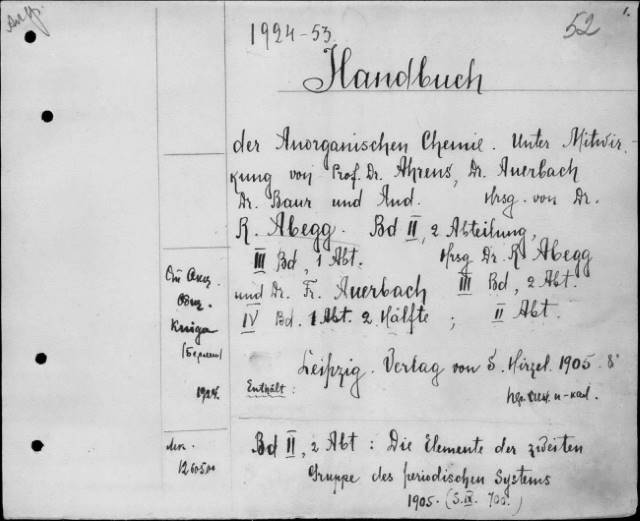 1924-53
52
Handbuch
der Anorganischen Chemie. Unter Mitwir-
kung von Prof. Dr. Ahrens, Dr. Auerbach
Dr. Baur und And. Hrsg. von Dr.
R. Abegg. Bd II, 2 Abteilung,
III Bd, 1 Abt. Hrsg Dr. R Abegg
und Dr. Fr. Auerbach III Bd, 2 Abt.
IV Bd. 1 Abt. 2. Hälfte ; II Abt.
Leipzig. Verlag von S. Hirzel. 1905. 8°
Enthält:
Bd II, 2 Abt : Die Elemente der zweiten
Gruppe des periodischen Systems
1905. (S. IX. 700.)
Книга
(Берлин)
1924